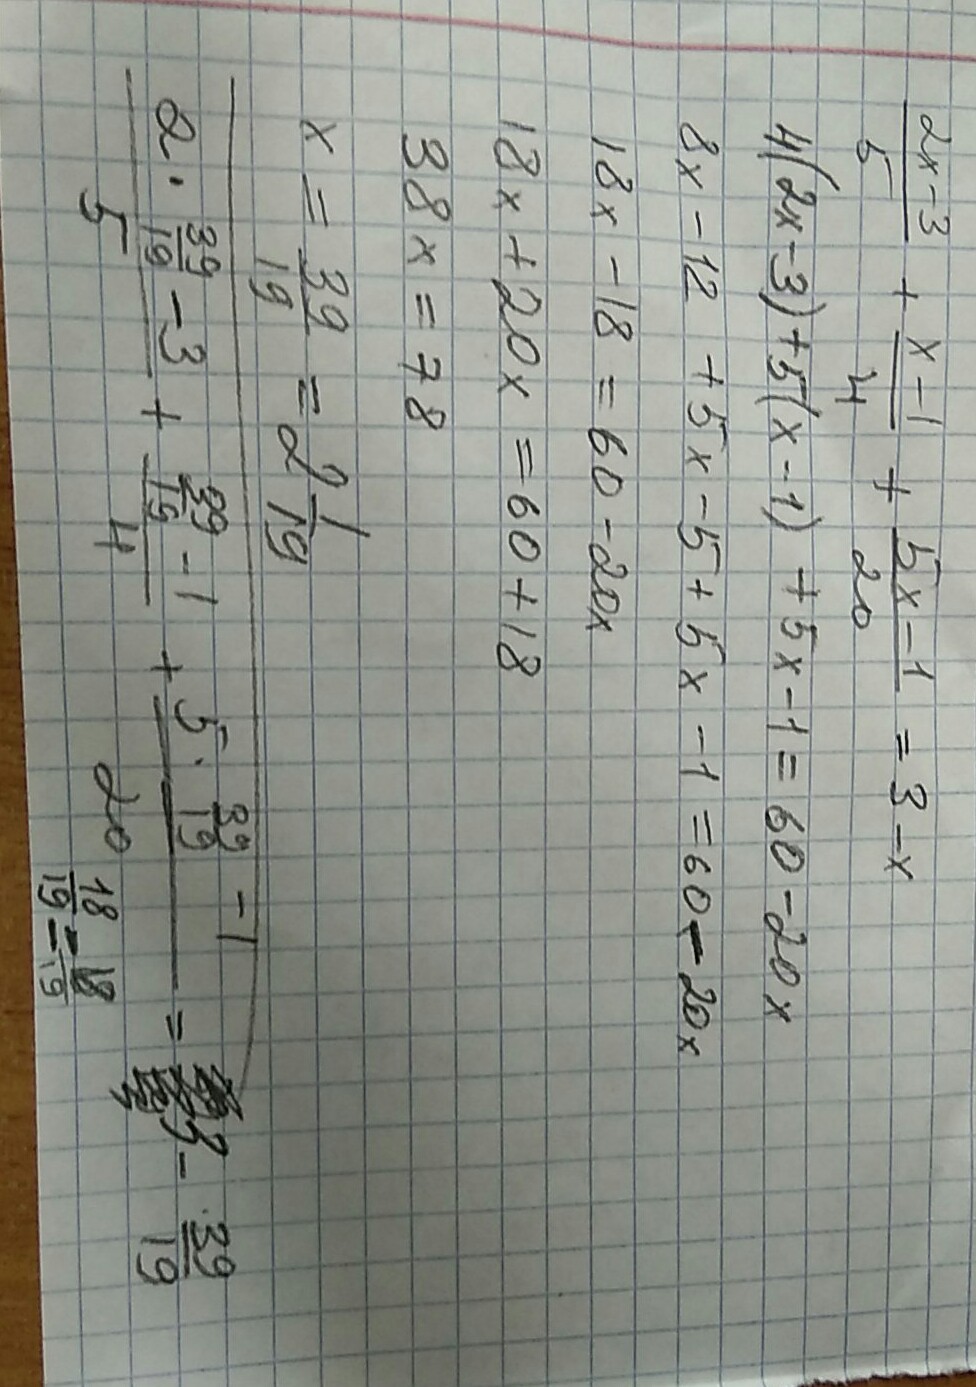 (2x-3)/5 + (x-1)/4 + (5x-1)/20 = 3-x
4(2x-3)+5(x-1)+5x-1=60-20x
8x-12+5x-5+5x-1=60-20x
18x-18=60-20x
18x+20x=60+18
38x=78
x=39/19=2 1/19
(2·39/19-3)/5 + (39/19-1)/4 + (5·39/19-1)/20 = 3-39/19
18/19=18/19